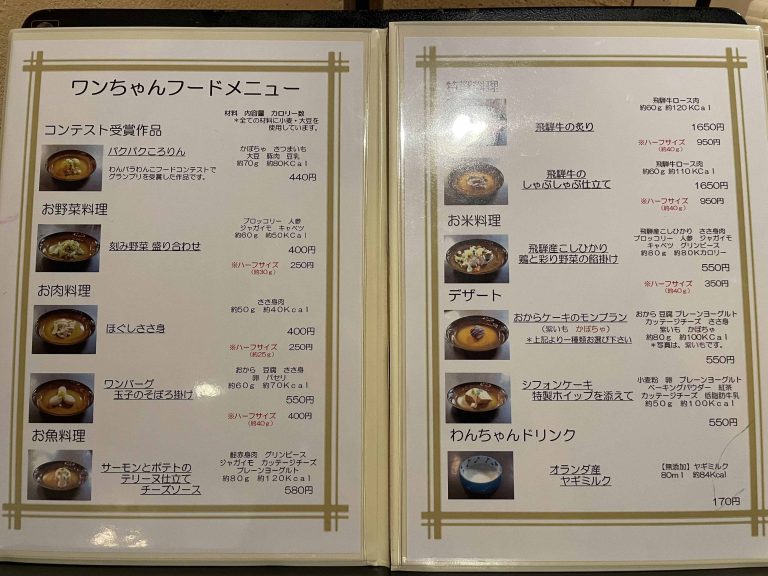 ワンちゃんフードメニュー
材料 内容量 カロリー数
＊全ての材料に小麦・大豆を
使用しています。
コンテスト受賞作品
パクパクころりん
わんパラわんこフードコンテストで
グランプリを受賞した作品です。
かぼちゃ さつまいも
大豆 豚肉 豆乳
約70g 約80KCal
440円
お野菜料理
刻み野菜 盛り合わせ
ブロッコリー 人参
ジャガイモ キャベツ
約60g 約50KCal
400円
※ハーフサイズ 250円
(約30g)
お肉料理
ほぐしささ身
ささ身肉
約50g 約40Kcal
400円
※ハーフサイズ 250円
(約25g)
ワンバーグ
玉子のそぼろ掛け
おから 豆腐 ささ身
卵 パセリ
約60g 約70Kcal
550円
※ハーフサイズ 400円
(約40g)
お魚料理
サーモンとポテトの
テリーヌ仕立て
チーズソース
鮭赤身肉 グリンピース
ジャガイモ カッテージチーズ
プレーンヨーグルト
約80g 約120KCal
580円
料理
飛騨牛の炙り
飛騨牛ロース肉
約60g 約120KCal
1650円
※ハーフサイズ 950円
(約40g)
飛騨牛の
しゃぶしゃぶ仕立て
飛騨牛ロース肉
約60g 約110KCal
1650円
※ハーフサイズ 950円
(約40g)
お米料理
飛騨産こしひかり
鶏と彩り野菜の餡掛け
飛騨産こしひかり ささ身肉
ブロッコリー 人参 ジャガイモ
キャベツ グリンピース
約80g 約80Kカロリー
550円
※ハーフサイズ 350円
(約40g)
デザート
おからケーキのモンブラン
(紫いも かぼちゃ)
＊上記より一種類お選び下さい
おから 豆腐 プレーンヨーグルト
カッテージチーズ ささ身
紫いも かぼちゃ
約80g 約100KCal
＊写真は、紫いもです。
550円
シフォンケーキ
特製ホイップを添えて
小麦粉 卵 プレーンヨーグルト
ベーキングパウダー 紅茶
カッテージチーズ 低脂肪牛乳
約50g 約100Kcal
550円
わんちゃんドリンク
オランダ産
ヤギミルク
【無添加】ヤギミルク
80ml 約84Kcal
170円